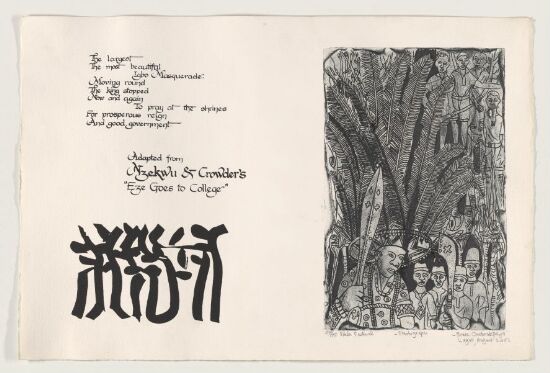 The largest
The most beautiful
Igbo Masquerade:
Moving round
The king stopped
Now and again
To pray at the shrines
For prosperous reign
And good government
Adapted from
Nzekwu & Crowder's
"Eze Goes to College"
Lagos, August 2002